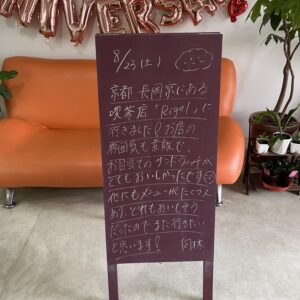 VERSARY
8/23(土)
京都 長岡京にある
喫茶店「Rigel」に
行きました！お店の
雰囲気も素敵で、
お目当てのサンドウィッチが
とてもおいしかったです
他にもメニューがたくさん
あり、どれもおいしそう
だったのでまた行きたい
と思います！